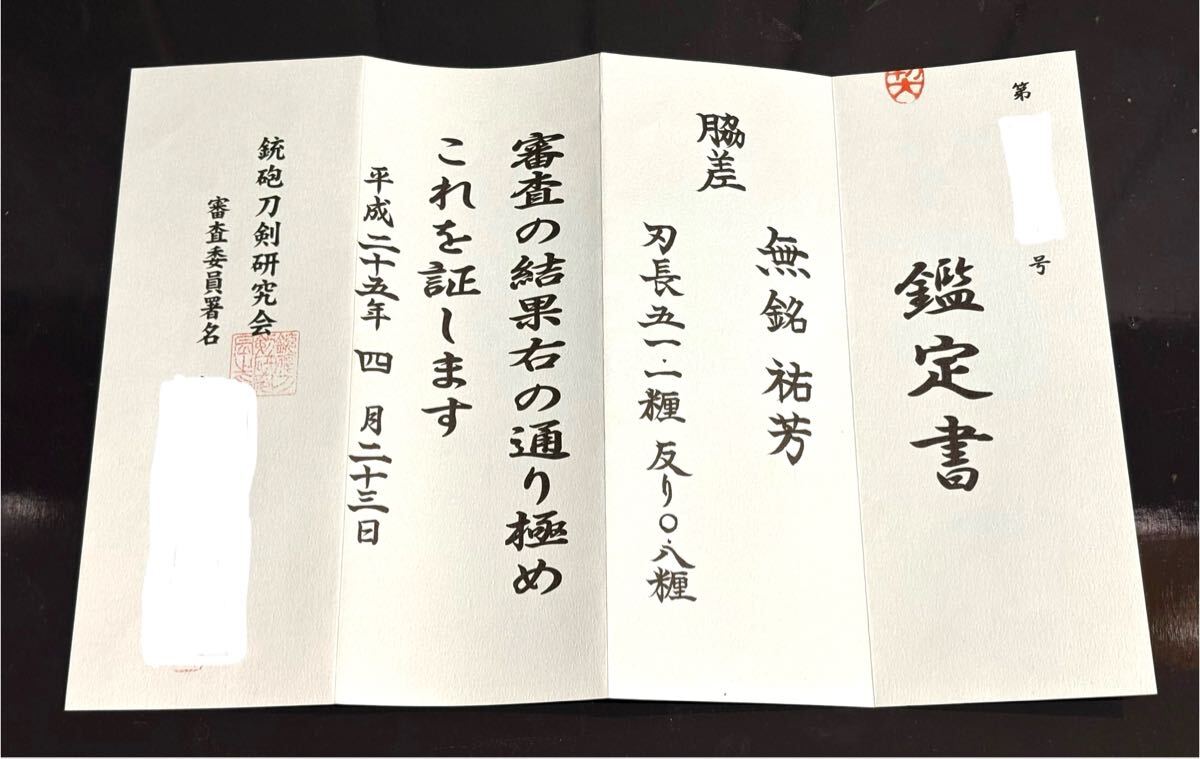 第 号
鑑定書
脇差
無銘 祐芳
刃長五一.一糎 反り〇.八糎
審査の結果右の通り極め
これを証します
平成二十五年 四 月二十三日
銃砲刀剣研究会
審査委員署名